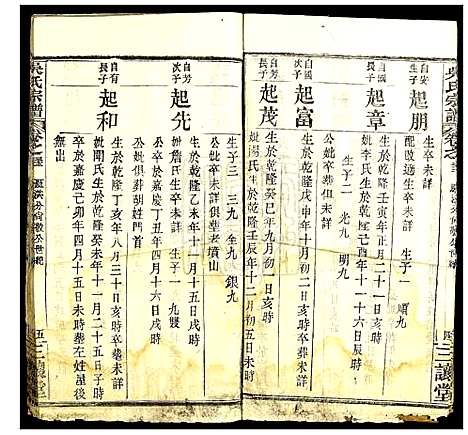 吳氏宗譜
自安
生子
起朋
生子一 順九
配敢適生卒未詳
自國
長子
起章
生於乾隆壬寅年正月二十一日亥時
妣李氏生於乾隆己酉年十一月初一日亥時
公妣卒葬未詳
生子二 光九 明九
自國
次子
起富
生於乾隆戊申年十月初二日亥時
公妣卒葬俱未詳
自芳
長子
起茂
生於乾隆癸巳年九月初一日亥時
妣湯氏生於乾隆壬辰年十二月初五日未時
三讓堂
吳氏宗譜
卒葬未詳俱葬老墳山
生子三 三九 全九 銀九
自芳
次子
起先
生於乾隆乙未年十一月十五日戌時
妣詹氏生卒未詳 生子一 九䕶
卒於嘉慶丁丑年四月十六日戌時
公妣俱葬胡姓門首
自有
長子
起和
生於乾隆丁亥年八月三十日亥時卒葬未詳
妣開氏生於乾隆癸未年十一月二十五日子時
卒於嘉慶己卯年四月十五日未時葬左姓屋後
無出
五
三讓堂